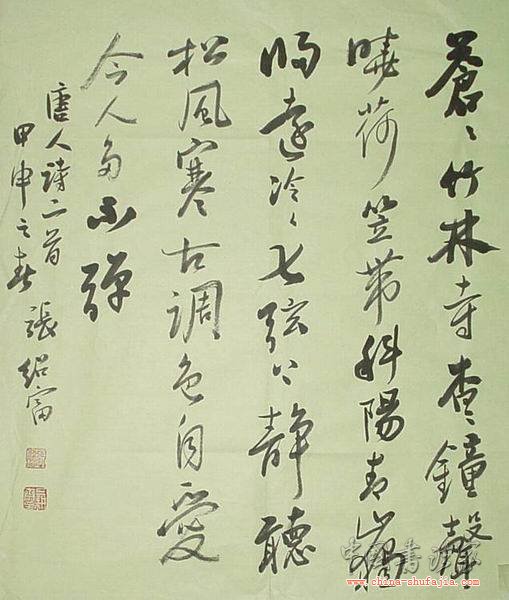 蒼〻竹林寺杳〻鐘聲
晚荷笠帶斜陽青山獨
歸遠泠〻七弦上靜聽
松風寒古調雖自愛
今人多不彈
唐人詩二首
甲申之春 張紹富
中国书法家
www.china-shufajia.com